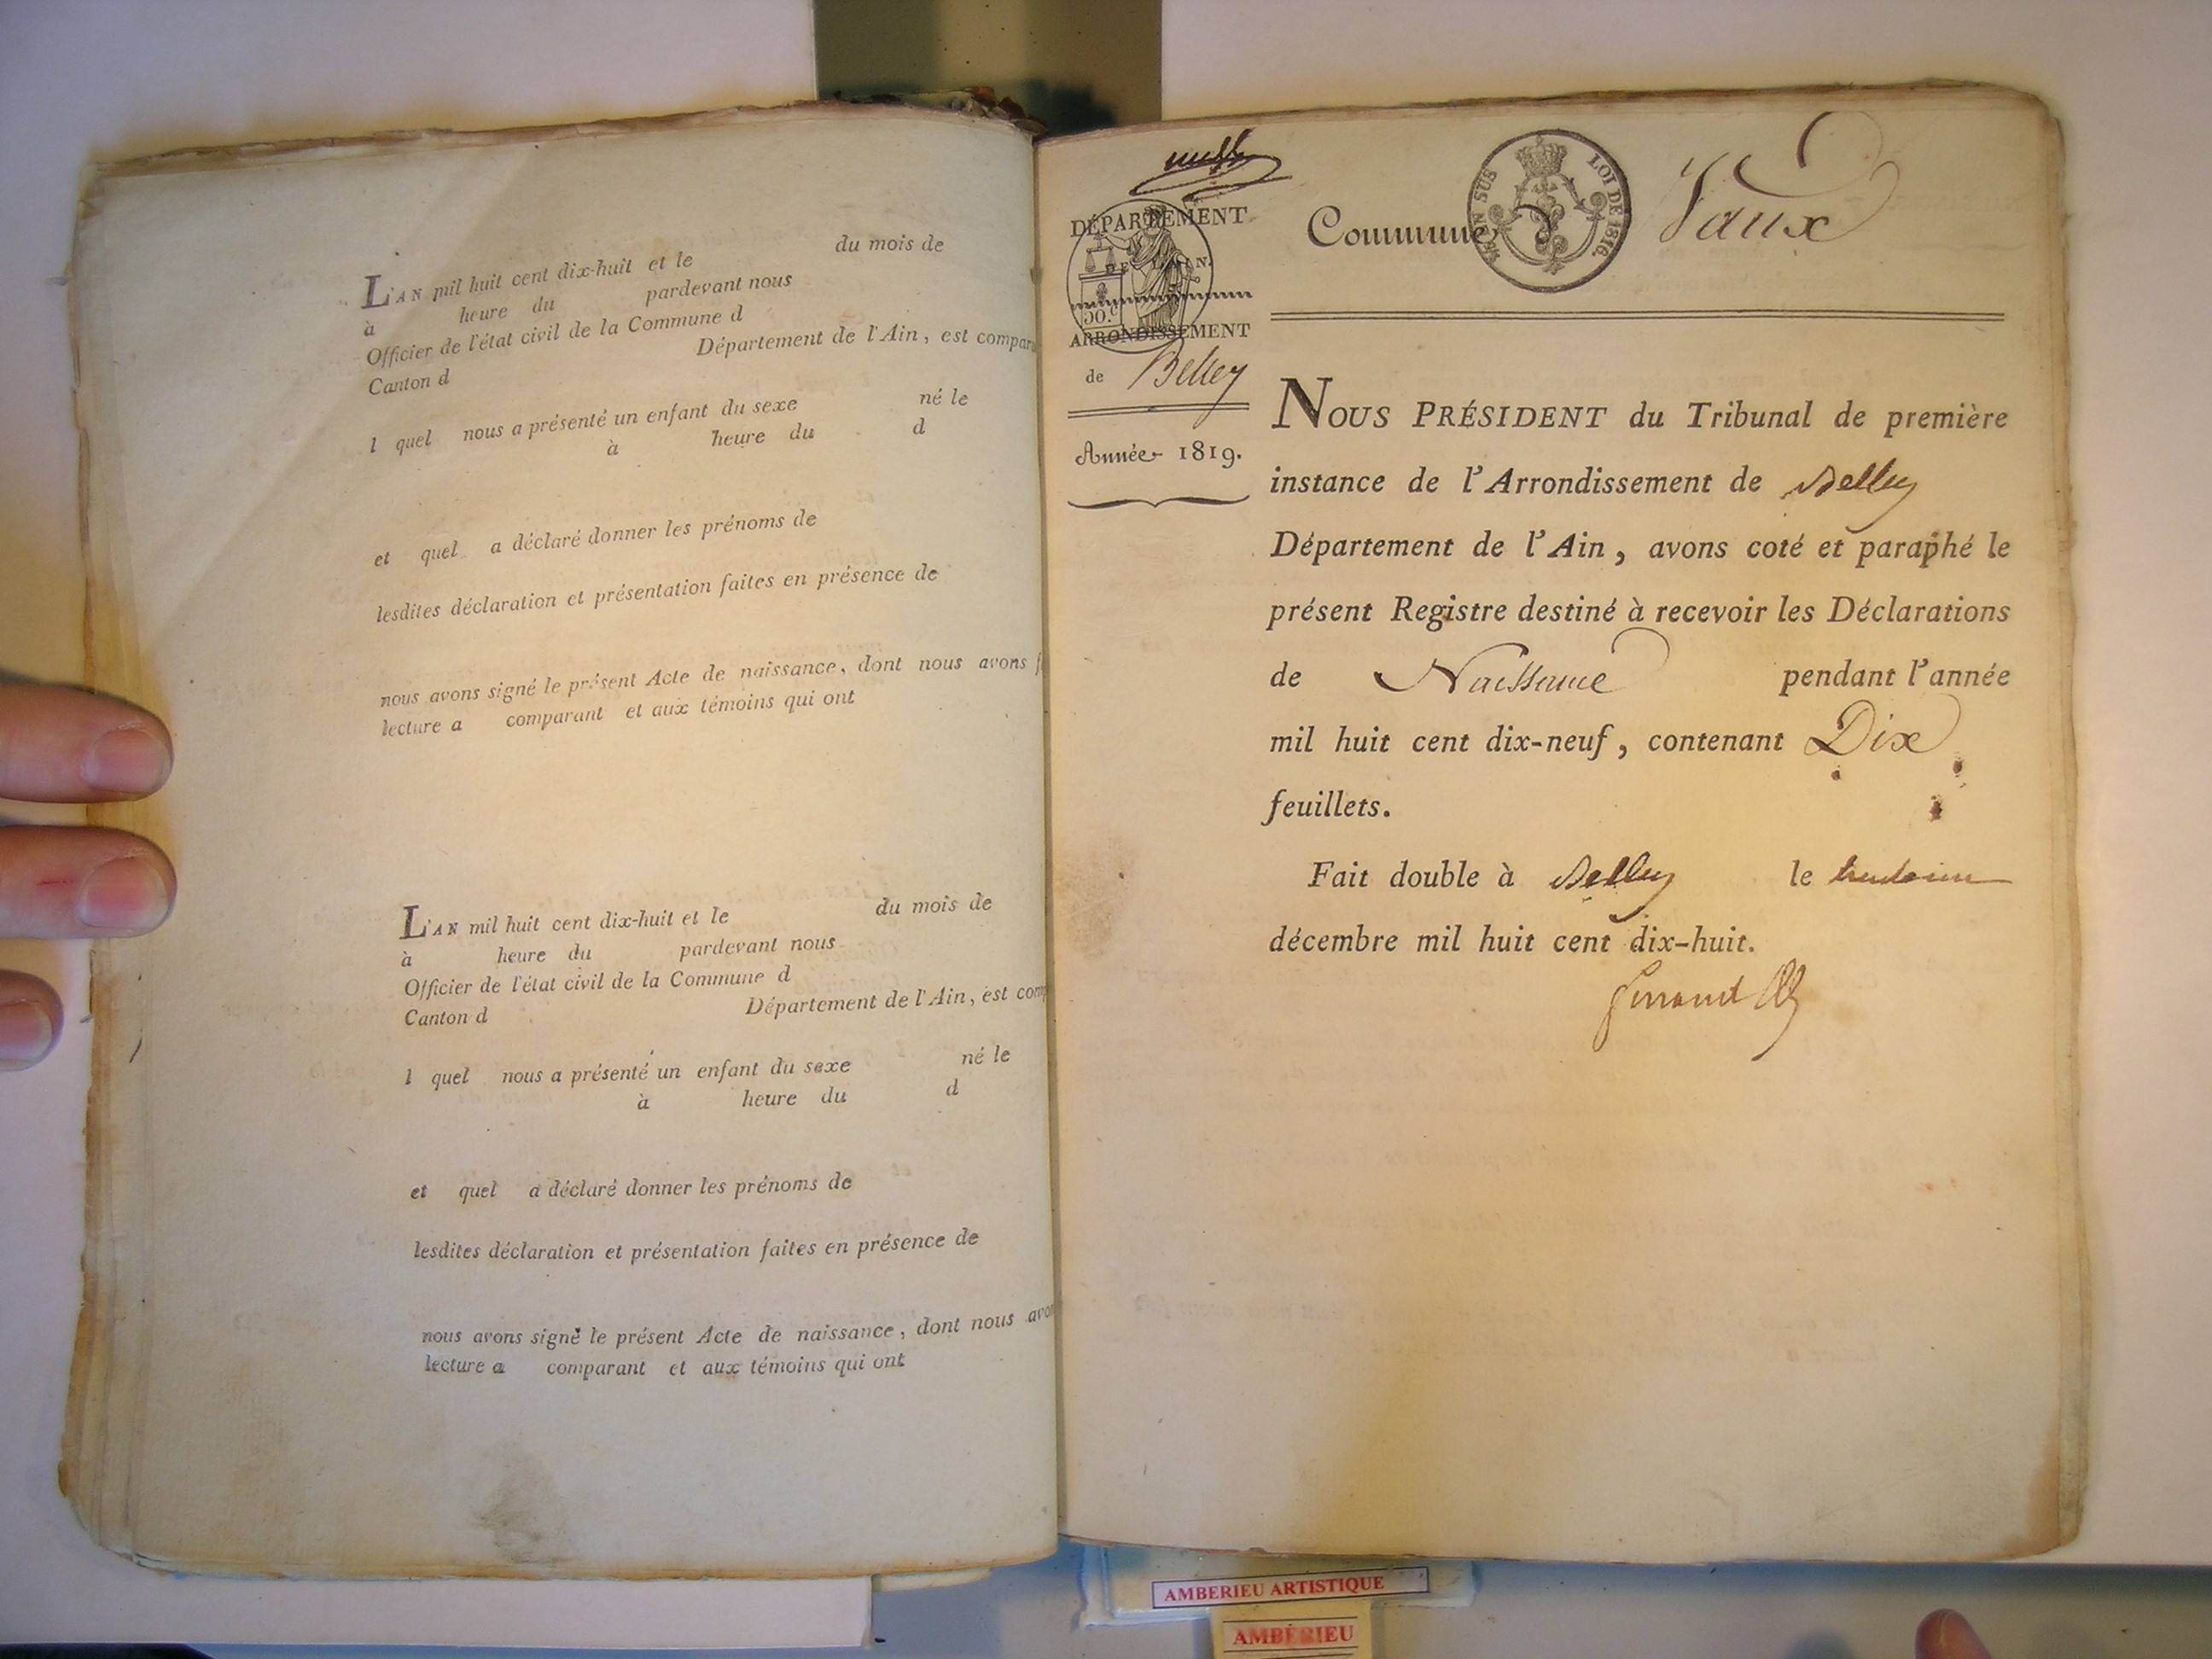 L'AN mil huit cent dix-huit et le du mois de
à heure du pardevant nous
Officier de l'état civil de la Commune d
Canton d Département de l'Ain, est compar
l quel nous a présenté un enfant du sexe né le
à heure du d
et quel a déclaré donner les prénoms de
lesdites déclaration et présentation faites en présence de
nous avons signé le présent Acte de naissance, dont nous avons f
lecture a comparant et aux témoins qui ont
L'AN mil huit cent dix-huit et le du mois de
à heure du pardevant nous
Officier de l'état civil de la Commune d
Canton d Département de l'Ain, est com
l quel nous a présenté un enfant du sexe né le
à heure du d
et quel a déclaré donner les prénoms de
lesdites déclaration et présentation faites en présence de
nous avons signé le présent Acte de naissance, dont nous avo
lecture a comparant et aux témoins qui ont
DÉPARTEMENT
DE L'AIN.
50.c
ARRONDISSEMENT
de Belley
Année 1819.
EN SUS LOI DE 1816.
Commune d Vaux
NOUS PRÉSIDENT du Tribunal de première
instance de l'Arrondissement de Belley
Département de l'Ain, avons coté et paraphé le
présent Registre destiné à recevoir les Déclarations
de Naissance pendant l'année
mil huit cent dix-neuf, contenant Dix
feuillets.
Fait double à Belley le
décembre mil huit cent dix-huit.
AMBERIEU ARTISTIQUE
AMBÉRIEU